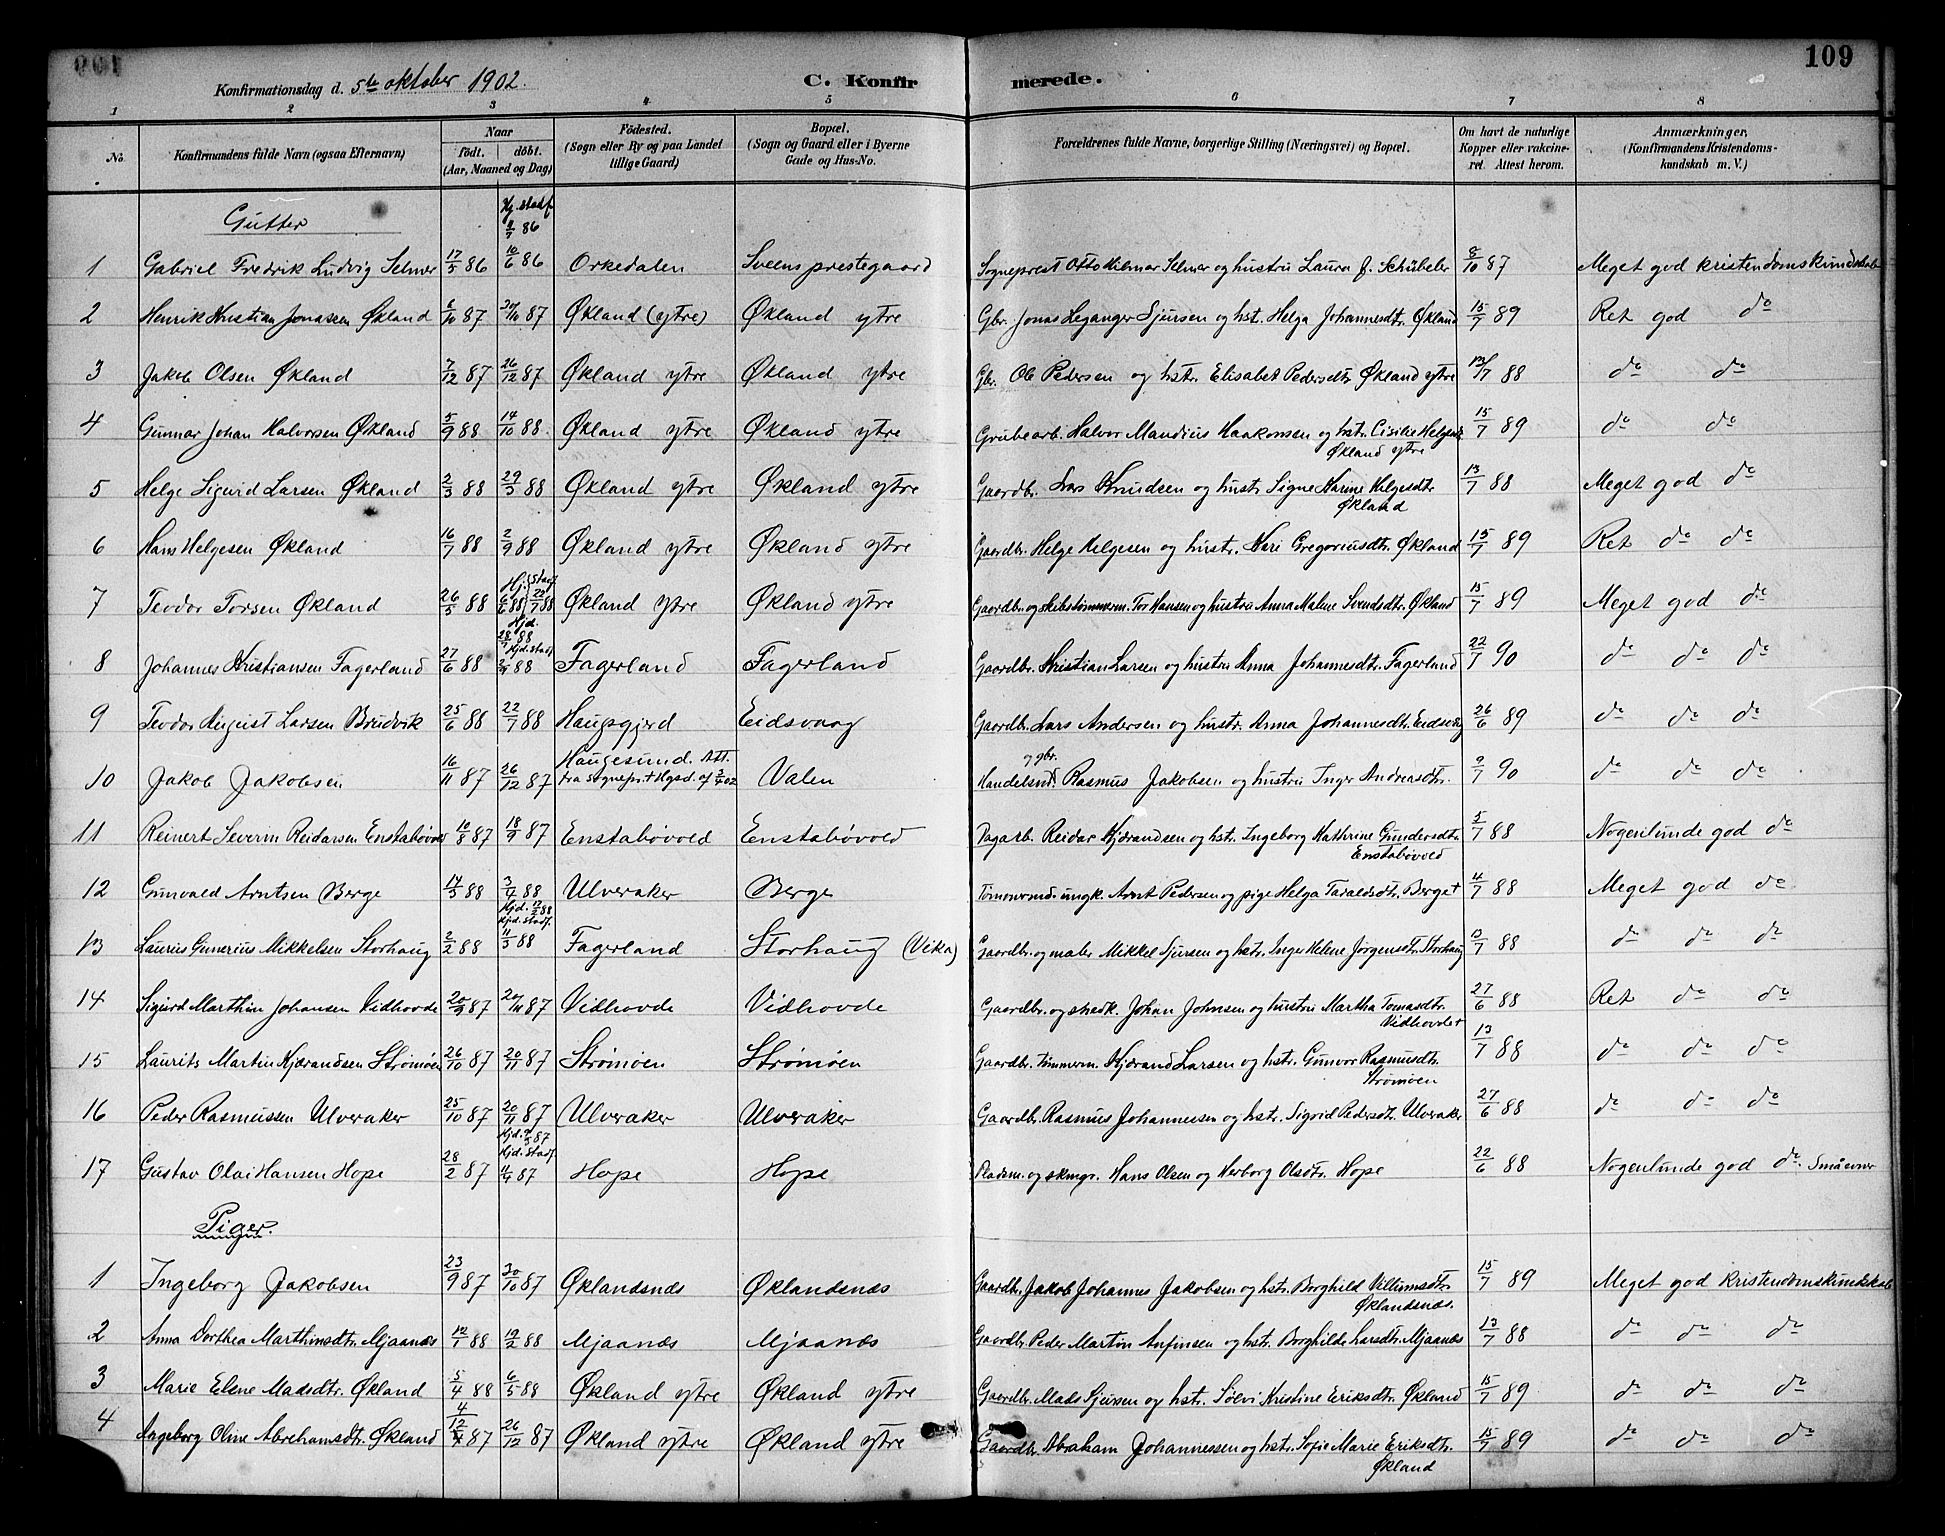 109
Konfirmationsdag d. 5te oktober 1902. C. Konfirmerede.
1 2 3 4 5 6 7 8
No. Konfirmandens fulde Navn (ogsaa Efternavn) Naar födt. döbt. (Aar, Maaned og Dag) Födested. (Sogn eller By og paa Landet tillige Gaard) Bopæl. (Sogn og Gaard eller i Byerne Gade og Hus-No. Forældrenes fulde Navne, borgerlige Stilling (Næringsvei) og Bopæl. Om havt de naturlige Kopper eller vaccineret. Attest herom. Anmærkninger. (Konfirmandens Kristendomskundskab m. V.)
Gutter Hj. stadf. 86
1 Gabriel Fredrik Ludvig Selmer 17/5 86 10/6 86 Orkedalen Sveens prestegaard Sogneprest Otto Hilmar Selmer og hustru Laura J. Schübeler 8/10 87 Meget god kristendomskundskab
2 Henrik Kristian Jonassen Økland 6/10 87 30/10 87 Økland (ytre) Økland ytre Gbr. Jonas Leganger Sjursen og hst. Helga Johannesdtr. Økland 15/7 89 Ret god do
3 Jakob Olsen Økland 7/12 87 26/12 87 Økland ytre Økland ytre Gbr. Ole Pedersen og hstr. Elisabet Pedersdtr Økland ytre 13/7 88 do do
4 Gunnar Johan Halvorsen Økland 5/9 88 14/10 88 Økland ytre Økland ytre Grubearb. Halvor Mandius Haakonsen og hstr. Cisilie Helgesdtr
Økland ytre 15/7 89 do do
5 Helge Sigvid Larsen Økland 2/3 88 29/3 88 Økland ytre Økland ytre Gaardbr. Lars Knudsen og hustr. Signe Karine Helgesdtr
Økland 13/7 88 Meget god do
6 Hans Helgesen Økland 16/7 88 2/9 88 Økland ytre Økland ytre Gaardbr. Helge Helgesen og hustr. Kari Gregoriusdtr. Økland 15/7 89 Ret do do
7 Teodor Torsen Økland 26/5 88 Hj. 6/6 88 stadf. 22/7 88 Økland ytre Økland ytre Gaardbr. og skibstømmerm. Tor Hansen og hustru Anna Malene Svendsdtr. Økland 15/7 89 Meget god do
8 Johannes Kristiansen Fagerland 27/6 88 Hjd. 88 Hjd. stadf. 88 Fagerland Fagerland Gaardbr. Kristian Larsen og hustru Anna Johannesdtr. Fagerland 22/7 90 do do do
9 Teodor August Larsen Brudvik 25/6 88 22/7 88 Haugsgjerd Eidsvaag Gaardbr. Lars Andersen og hustr. Anna Johannesdtr. Eidsvåg 26/6 89 do do do
10 Jakob Jakobsen 16/11 87 26/12 87 Haugesund. Att. fra sognepr. Valen Handelsmd. og gbr. Rasmus Jakobsen og hustru Inger Andreasdtr. 9/7 90 do do do
11 Reinert Severin Reidarsen Enstabøvold 10/8 87 18/9 87 Enstabøvold Enstabøvold Dagarb. Reidar Kjærandsen og hst. Ingeborg Kathrine Gundersdtr.
Enstabøvold 5/7 88 Nogenlunde god do
12 Gunvald Arntsen Berge 14/3 88 3/4 88 Ulveraker Berge ungk. Arnt Pedersen og pige Helga Taraldsdtr. Berget 4/7 88 Meget god do
13 Laurits Gunerius Mikkelsen Storhaug 2/2 88 Hjd. 88 Hjd. stadf. 11/3 88 Fagerland Storhaug (Vika) Gaardbr. og maler Mikkel Sjursen og hstr. Inger Helene Jørgensdtr. Storhaug 13/7 88 do do do
14 Sigurd Marthin Johansen Vidhovde 20/9 87 20/11 87 Vidhovde Vidhovde Gaardbr. og snedk. Johan Johnsen og hustru Martha Tomasdtr.
Vidhovdet 27/6 88 Ret do do
15 Laurits Martin Kjærandsen Strømøen 26/10 87 20/11 87 Strømøen Strømøen Gaardbr. tømmerm. Kjærand Larsen og hst. Gunvor Rasmusdtr.
Strømøen 13/7 88 do do do
16 Peder Rasmussen Ulveraker 25/10 87 20/11 87 Ulveraker Ulveraker Gaardbr. Rasmus Johannessen og hst. Sigvid Pedersdtr. Ulveraker 27/6 88 do do do
17 Gustav Olai Hansen Hope 28/2 87 Hjd. 87 Hjd. stadf. 11/4 87 Hope Hope Pladsm. og skmgr. Hans Olsen og Herborg Olsdtr. Hope 22/6 88 Nogenlunde god do. Små evner
Piger.
1 Ingeborg Jakobsen 23/9 87 30/10 87 Øklandsnæs Øklandsnæs Gaardbr. Jakob Johannes Jakobsen og hst. Borghild Villumsdtr
Øklandsnæs. 15/7 89 Meget god kristendomskundskab
2 Anna Dorthea Marthinsdtr. Mjaanæs 12/1 88 19/2 88 Mjaanæs Mjaanæs Gaardbr. Peder Martin Anfinsen og hst. Borghilde Larsdtr. Mjaanæs 13/7 88 do do do
3 Marie Elene Madsdtr. Økland 5/4 88 6/5 88 Økland ytre Økland ytre Gaardbr. Mads Sjursen og hst. Sølvi Kristine Eriksdtr. Økland 15/7 89 do do do
4 Ingeborg Oline Abrahamsdtr. Økland 4/12 87 26/12 87 Økland ytre Økland ytre Gaardbr. Abraham Johannessen og hst. Sofie Marie Eriksdtr.
Økland 15/7 89 do do do